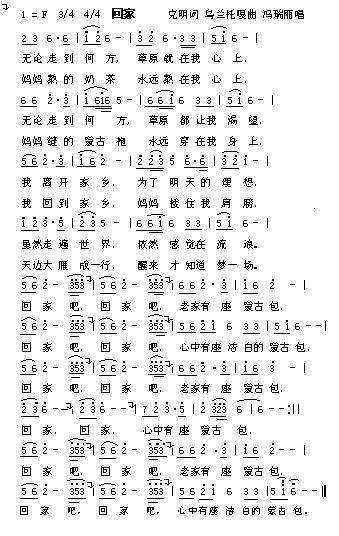 1 = F 3/4 4/4 回家 克明词 乌兰托嘎曲 冯瑞丽唱
2 3 6 · 6 | 1 2 6 - | 3 2 6 · 3 3 | 5 1 6 - |
无论走到何方, 草原就在我心上.
妈妈熬的奶茶 永远熬在我心上.
6 6 2 · 3 | 1 6 1 6 5 - | 6 6 1 6 3 3 | 5 1 6 - |
无论走到何方, 草原都让我渴望.
妈妈缝的蒙古袍 永远穿在我身上.
5 6 2 · 3 | 1 6 2 - | 2 2 3 5 6 · 6 | 3 2 1 - |
我离开家乡, 为了明天的理想.
我回到家乡, 妈妈搂住我肩膀.
1 2 3 · 5 | 2 3 5 - | 6 6 1 6 3 3 | 5 1 6 - |
虽然走遍世界, 依然感觉在流浪。
天边大雁成一行, 醒来才知道梦一场。
5 6 2 - 3 5 3 | 5 6 2 - 3 5 3 | 5 6 6 2 · 1 | 6 - - |
回家吧, 回家吧, 老家有座蒙古包.
5 6 2 - 3 5 3 | 5 6 2 - 3 5 3 | 5 6 2 1 6 3 3 | 5 1 6 - - |
回家吧, 回家吧, 心中有座洁白的蒙古包.
5 6 2 - 3 5 3 | 5 6 2 - 3 5 3 | 5 6 6 2 · 1 | 6 3 - |
回家吧, 回家吧, 老家有座蒙古包.
2 3 6 - - | 2 3 6 - - | 7 2 3 · 5 | 2 3 2 3 6 | 6 - - :||
回家, 回家, 心中有座蒙古包.
5 6 2 - 3 5 3 | 5 6 2 - 3 5 3 | 5 6 6 2 · 1 | 6 - - |
回家吧, 回家吧, 老家有座蒙古包.
5 6 2 - 3 5 3 | 5 6 2 - 3 5 3 | 5 6 2 1 6 3 3 | 5 1 6 - - ||
回家吧, 回家吧, 心中有座洁白的蒙古包.